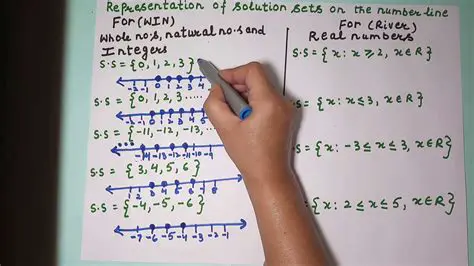 Representation of solution sets on the number line
For (WIN)
Whole no.s, natural no.s and
Integers
S.S = {0, 1, 2, 3}
-2 -1 0 1 2 3 4
S.S = {0, 1, 2, 3 .....
-2 -1 0 1 2 3 4 5
S.S = {-11, -12, -13, ....
-14 -13 -12 -11 -10 -9
S.S = {3, 4, 5, 6}
1 2 3 4 5 6 7 8
S.S = {-4, -5, -6}
-7 -6 -5 -4 -3 -2 -1
For (River)
Real numbers
S.S = {x: x ≥ 2, x ∈ R}
S.S = {x: x ≤ 3, x ∈ R}
S.S = {x: -3 ≤ x ≤ 3, x ∈ R}
{x: 2 ≤ x ≤ 5, x ∈ R}